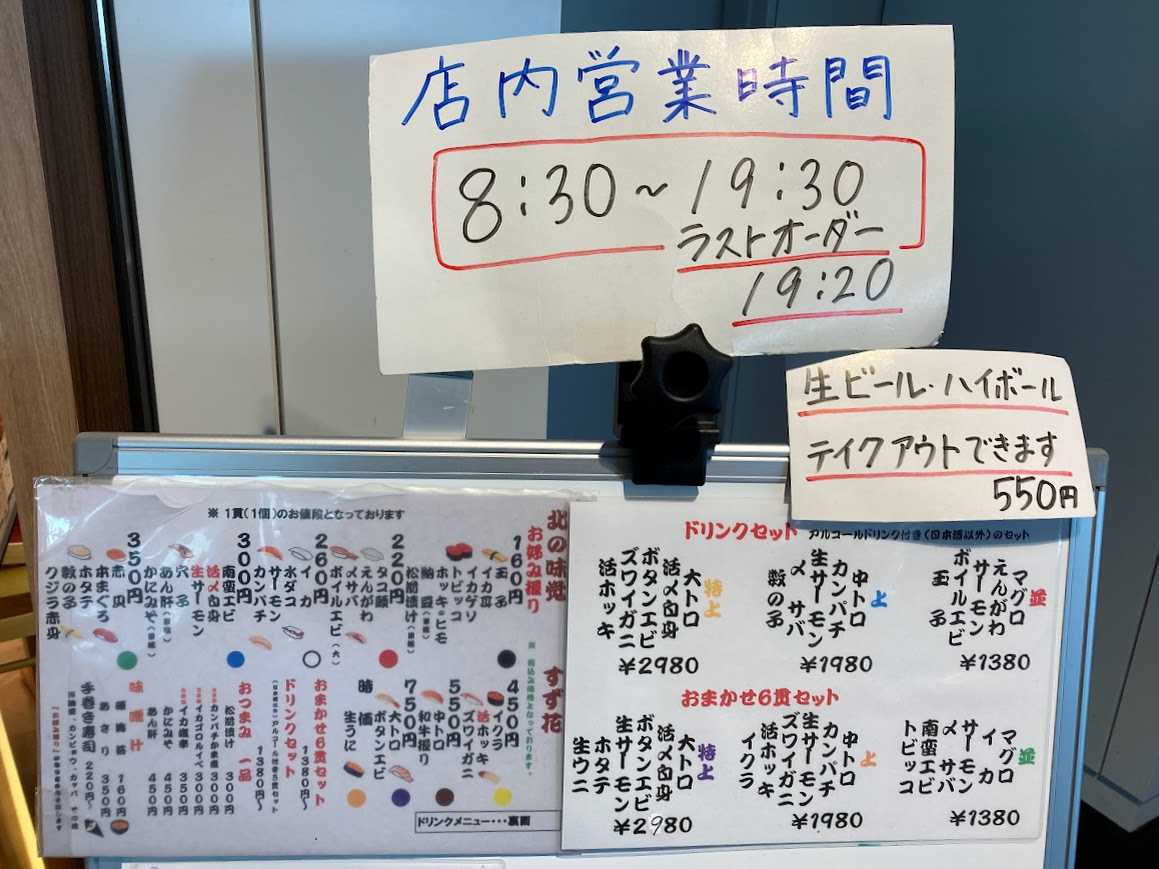 店内営業時間
8:30～19:30
ラストオーダー
19:20
生ビール・ハイボール
テイクアウトできます
550円
※ 1貫(1個)のお値段となっております
北の味覚 すず花
お好み握り
160円
玉子
イカ耳
イカゲソ
トビッコ
ホッキヒモ
松前漬け(軍艦)
220円
タコ頭
えんがわ
〆サバ
ボイルエビ(大)
260円
イカ
水ダコ
300円
サーモン
カンパチ
南蛮エビ
活〆白身
生サーモン
穴子
あん肝(軍艦)
かにみそ(軍艦)
350円
赤貝
本まぐろ
ホタテ
数の子
クジラ赤身
450円
イクラ
活ホッキ
ズワイガニ
550円
中トロ
和牛握り
750円
大トロ
ボタンエビ
時価
生うに
おまかせ6貫セット
1380円～
ドリンクセット
1380円～
おつまみ一品
松前漬け 300円
カンパチかま煮 300円
イカゴロルイベ 300円
イカ塩辛 350円
かにみそ 450円
あん肝 450円
味噌汁
あさり 350円
手巻き寿司 220円～
ドリンクメニュー・・・裏面
ドリンクセット アルコールドリンク付き(日本酒以外)のセット
並
マグロ
えんがわ
〆サーモン
ボイルエビ
玉子
¥1380
上
中トロ
カンパチ
生サーモン
〆サバ
数の子
¥1980
特上
大トロ
活〆白身
ボタンエビ
ズワイガニ
活ホッキ
¥2980
おまかせ6貫セット
並
マグロ
イカ
サーモン
〆サバ
南蛮エビ
トビッコ
¥1380
上
中トロ
カンパチ
生サーモン
ズワイガニ
活ホッキ
イクラ
¥1980
特上
大トロ
活〆白身
ボタンエビ
生サーモン
ホタテ
生ウニ
¥2980